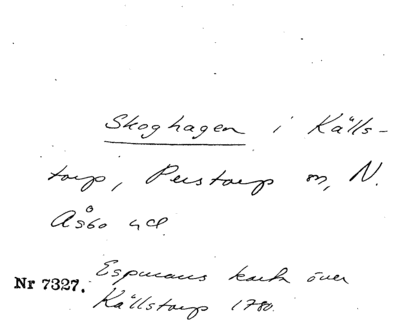 Skoghagen i Källs-
torp, Perstorp sn, N.
Åsbo hd.
Espmans karta över
Nr 7327. Källstorp 1780.